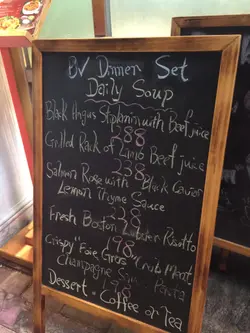 BV Dinner Set
Daily Soup
Black Angus Striploin with Beef juice
288
Grilled Rack of Beef juice
238
Salmon Rose with Black Caviar
Lemon Thyme Sauce
228
Fresh Boston Lobster Risotto
198
Crispy "Foie Gras" Crab Meat
Champagne Pasta
198
Dessert Coffee or Tea